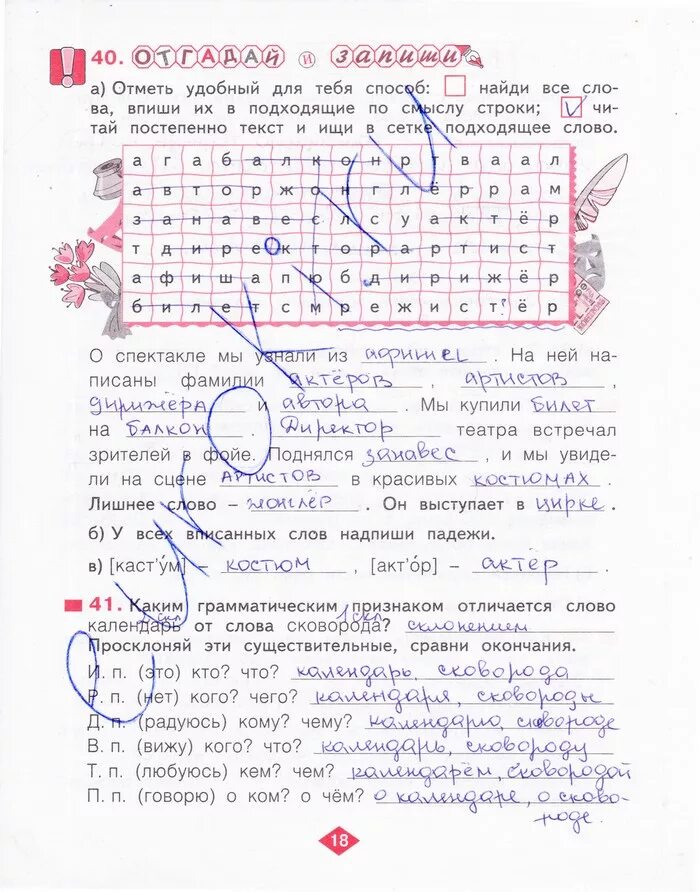 40. ОТГАДАЙ И ЗАПИШИ
а) Отметь удобный для тебя способ: найди все сло-
ва, впиши их в подходящие по смыслу строки; V чи-
тай постепенно текст и ищи в сетке подходящее слово.
а г а б а л к о н р т в а а л
а в т о р ж о н г л ё р р а м
з а н а в е с л с у а к т ё р
т д и р е к т о р а р т и с т
а ф и ш а п ю б д и р и ж ё р
б и л е т с м р е ж и с т ё р
О спектакле мы узнали из афиши. На ней на-
писаны фамилии актёров, артистов,
дирижёра и автора. Мы купили билет
на балкон. Директор театра встречал
зрителей в фойе. Поднялся занавес, и мы увиде-
ли на сцене артистов в красивых костюмах.
Лишнее слово – жонглёр. Он выступает в цирке.
б) У всех вписанных слов надпиши падежи.
в) [каст'ум] – костюм, [акт'ор] – актёр.
41. Каким грамматическим признаком отличается слово
2 скл. 1 скл.
календарь от слова сковорода? склонением
Просклоняй эти существительные, сравни окончания.
И. п. (это) кто? что? календарь, сковорода
Р. п. (нет) кого? чего? календаря, сковороды
Д. п. (радуюсь) кому? чему? календарю, сковороде
В. п. (вижу) кого? что? календарь, сковороду
Т. п. (любуюсь) кем? чем? календарём, сковородой
П. п. (говорю) о ком? о чём? о календаре, о сково-
роде.
18